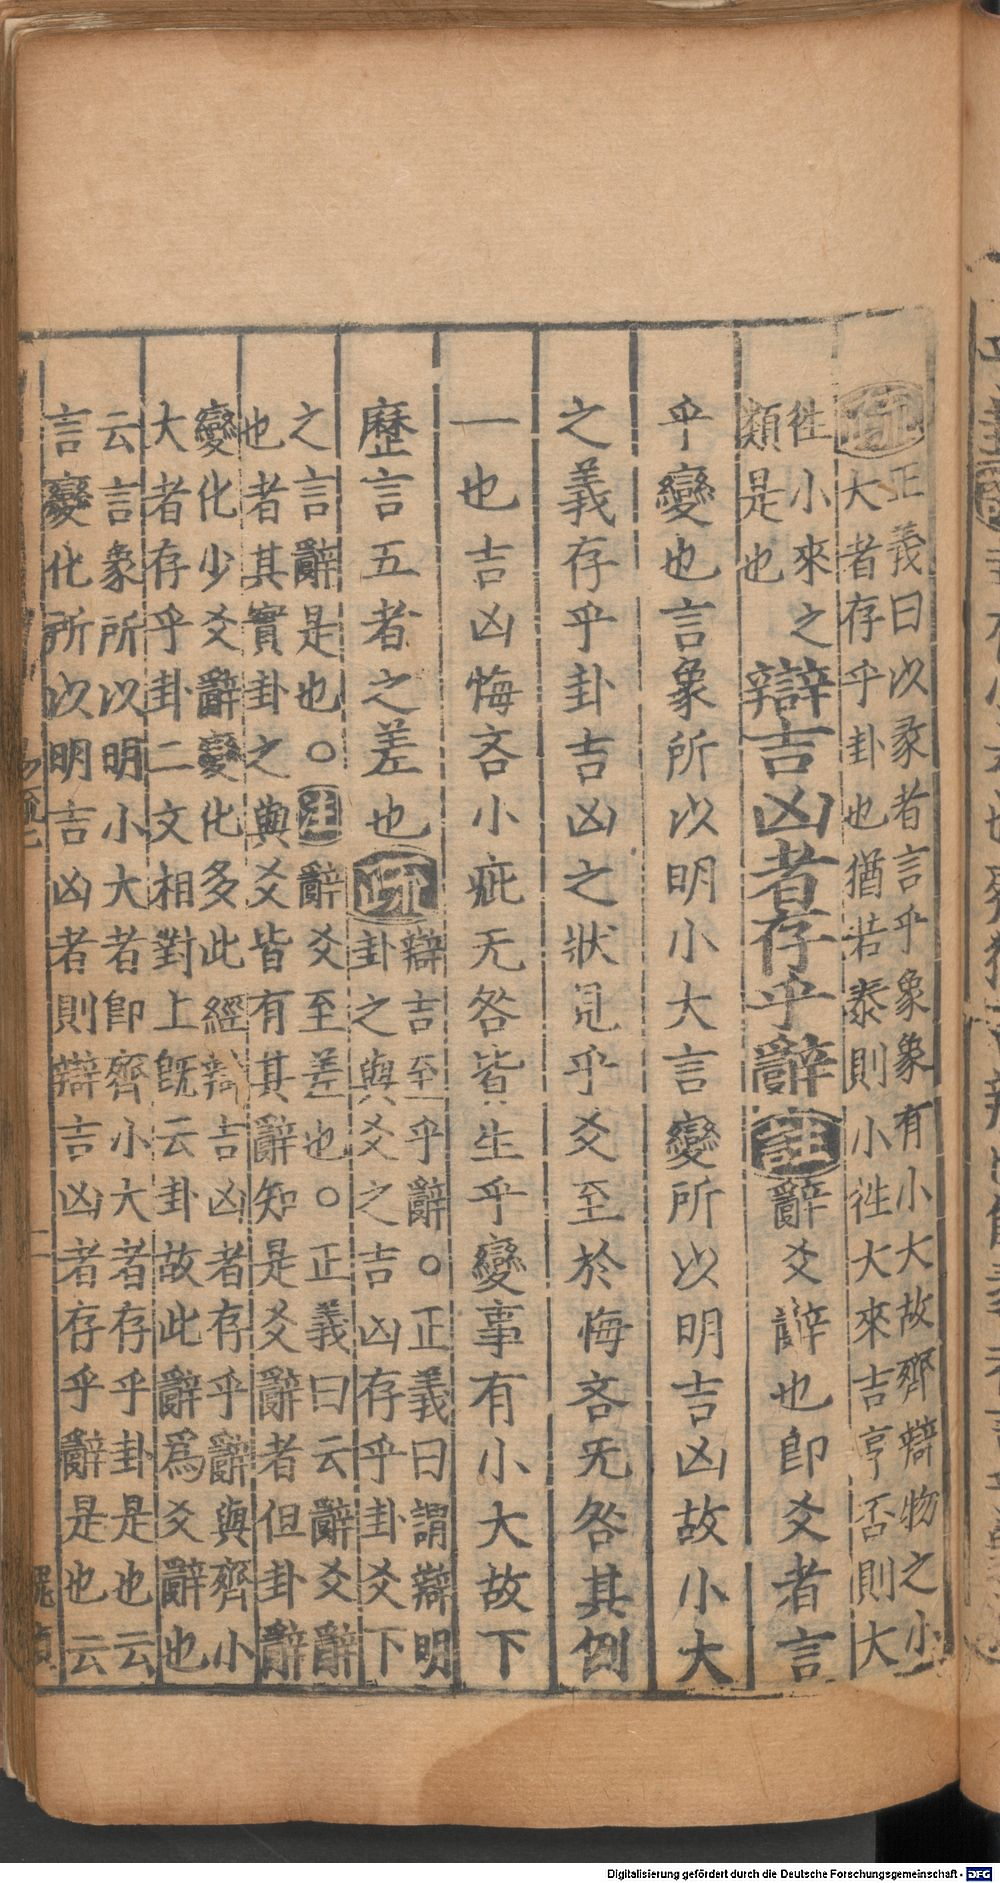 疏正義曰以彖者言乎象象有小大故齊辯物之小
大者存乎卦也猶若泰則小徃大來吉亨否則大
徃小來之
類是也
辯吉凶者存乎辭註辭爻辭也即爻者言
乎變也言象所以明小大言變所以明吉凶故小大
之義存乎卦吉凶之狀見乎爻至於悔吝无咎其例
一也吉凶悔吝小疵无咎皆生乎變事有小大故下
歷言五者之差也疏
辯吉至乎辭○正義曰謂辯明
卦之與爻之吉凶存乎卦爻下
之言辭是也○註辭爻至差也○正義曰云辭爻辭
也者其實卦之與爻皆有其辭知是爻辭者但卦辭
變化少爻辭變化多此經辯吉凶者存乎辭與齊小
大者存乎卦二文相對上旣云卦故此辭爲爻辭也
云言象所以明小大者卽齊小大者存乎卦是也云
言變化所以明吉凶者則辯吉凶者存乎辭是也云
易疏七
二
Digitalisierung gefördert durch die Deutsche Forschungsgemeinschaft - DFG